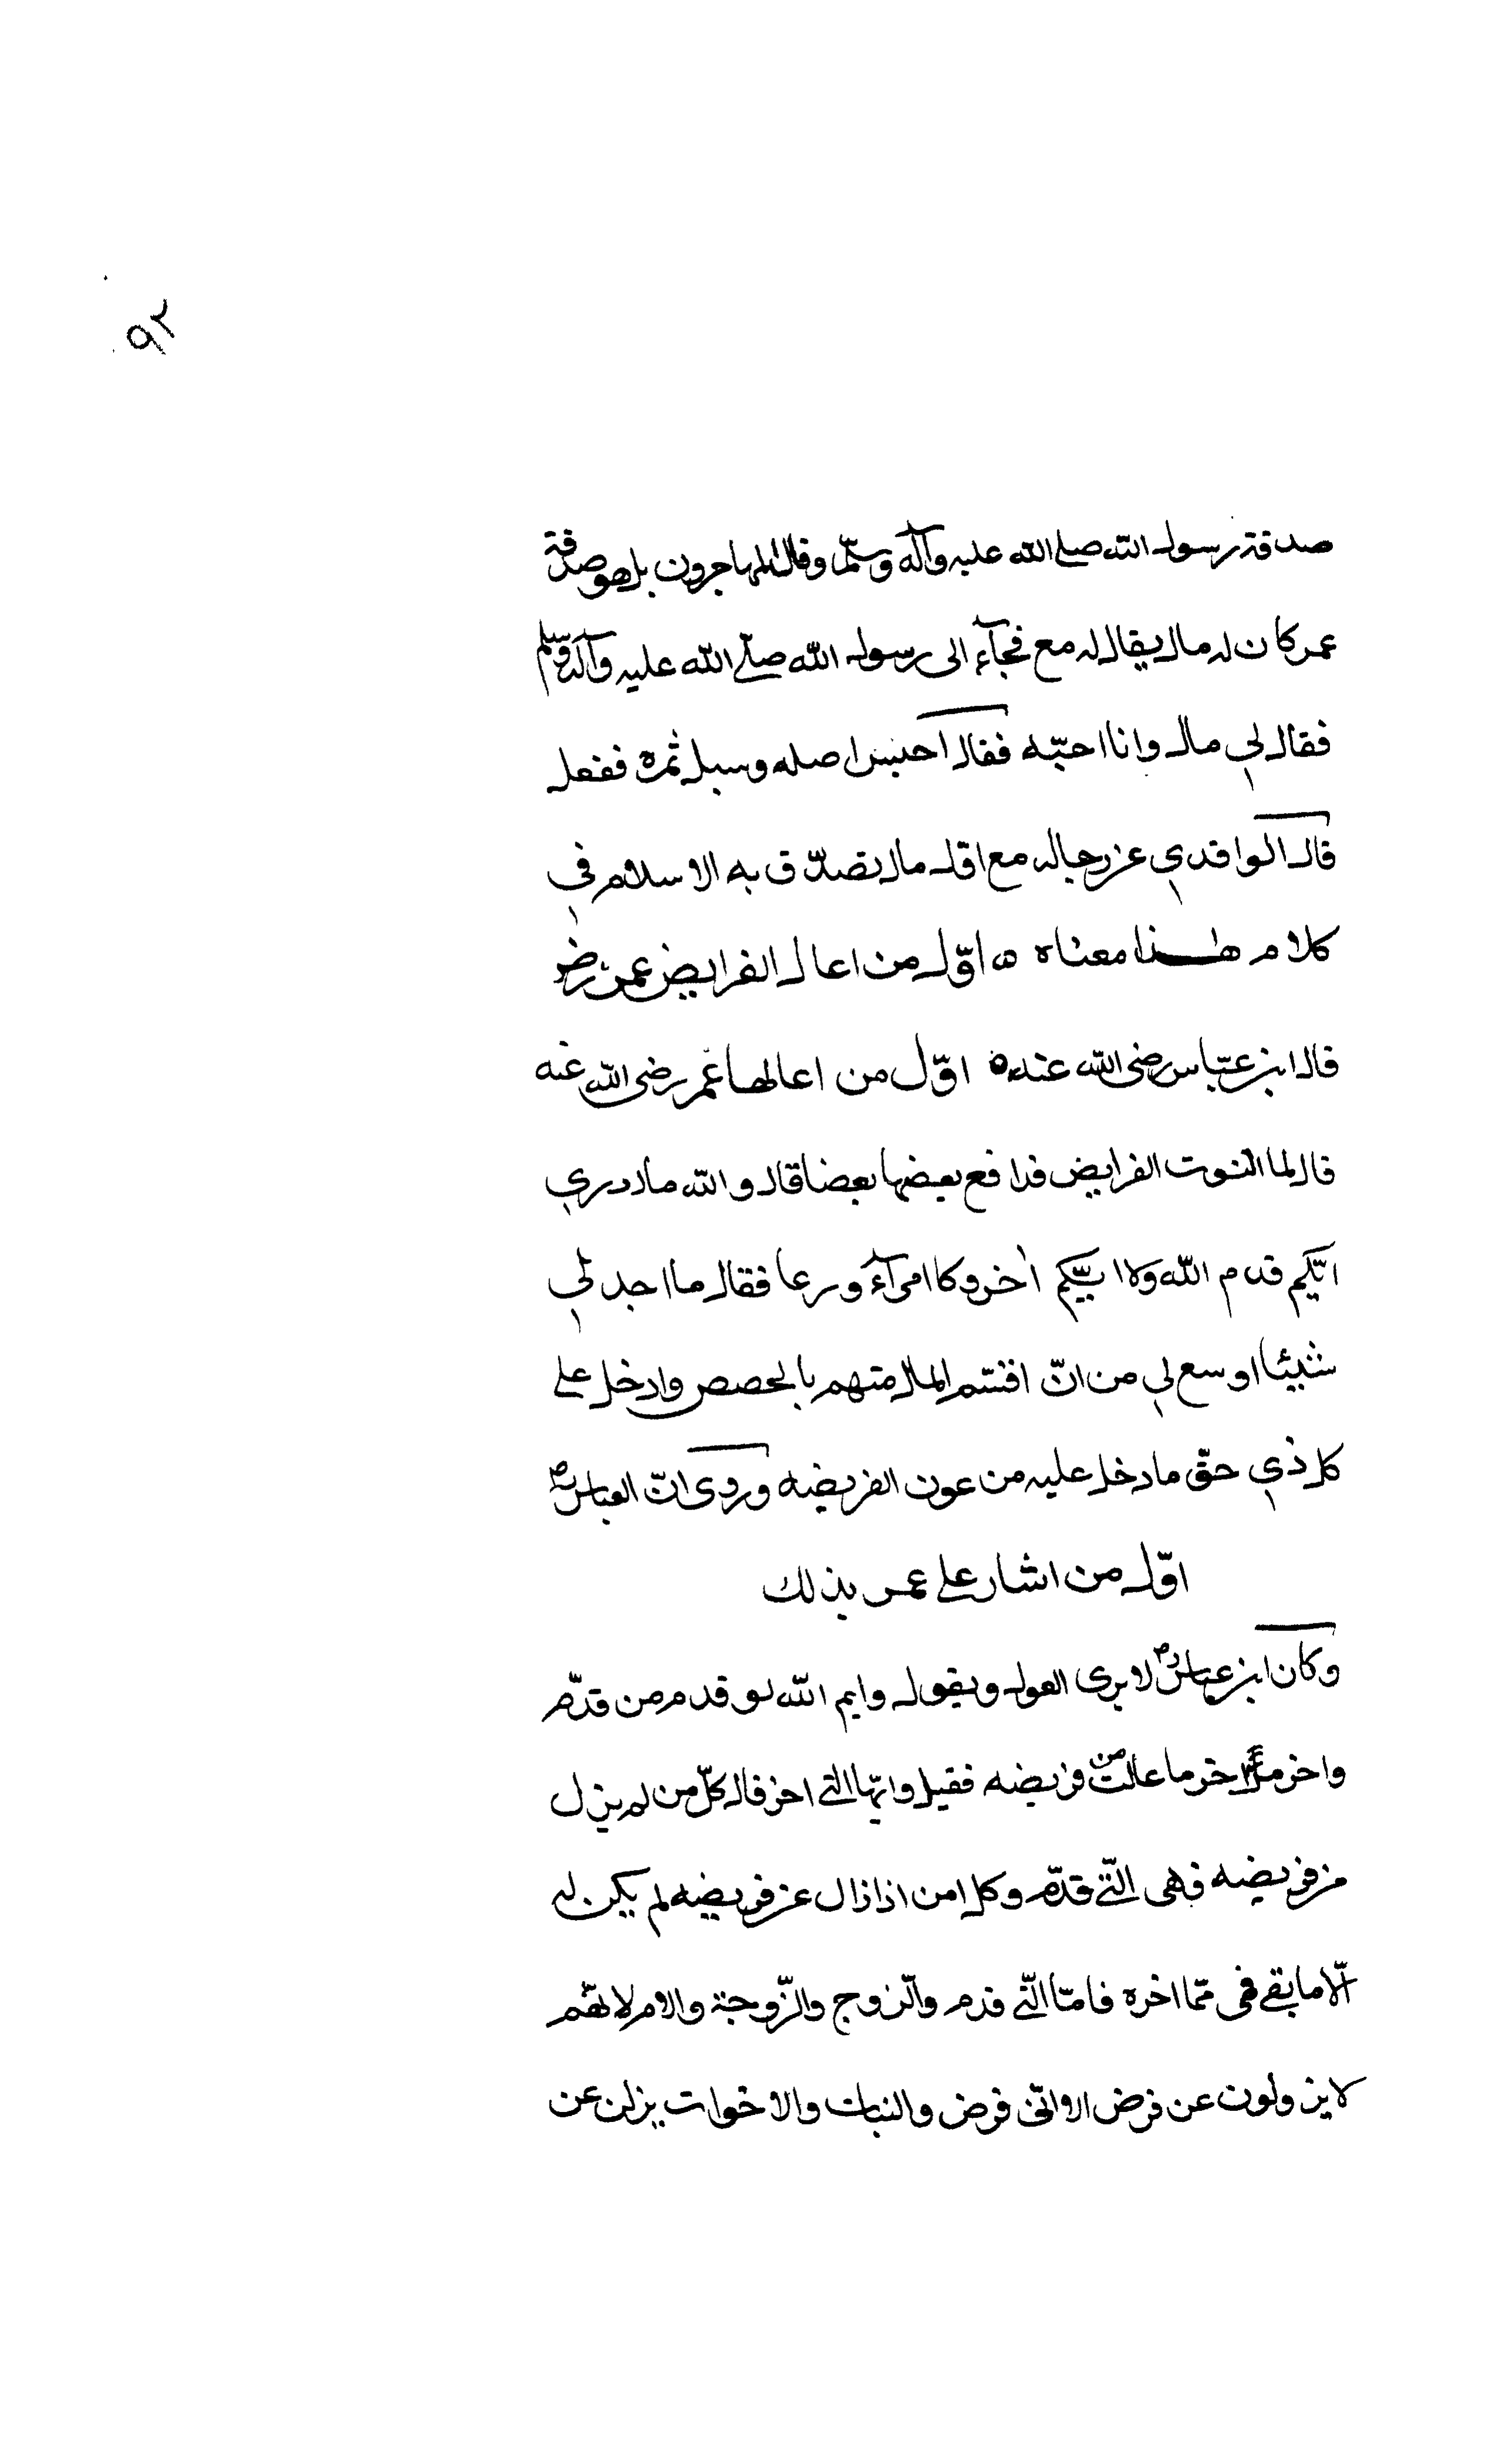 ٩٢
صدقة رسول الله صلى الله عليه وآله وسلم وقال المهاجرون بل هو صدقة
عمر كان له مال يقال له مع فجآء الى رسول الله صلى الله عليه وآله وسلم
فقال لي مال وانا احبّه فقال احبس اصله وسبل ثمره ففعل
قال الواقدي عن رجاله مع اول مال تصدّق به الاسلام في
كلام هذا معناه ه اوّل من اعال الفرايض عمر رض
قال ابن عبّاس رضى الله عنه ه اوّل من اعالها عمر رضى الله عنه
قال لما التوت الفرايض فدافع بعضها بعضا قال والله ما ادري
ايّكم قدم الله ولا ايّكم اخر وكا امرآء ورعا فقال ما اجد لي
شيئا اوسع لي من انّ اقسّم المال متهم بالحصص وادخل على
كل ذي حقّ ما دخل عليه من عون الفريضه وروى انّ العباس رض
اوّل من اشار على عمر بذلك
وكان ابن عباس رض لا يرى العول ويقول وايم الله لو قدم من قدّم
واخر من اخر ما عالت من فريضه فقيل وايّها التي اخر قال كلّ من لم يزل
من فريضه فهى الّتي قدّم وكل من اذا زال عن فريضه لم يكن له
الّا ما بقى فهى ممّا اخره فامّا الّتي قدم والزوج والزّوجة والام لانّهم
لا يزولون عن فرض الا الى فرض والبنات والاخوات يزلن عن